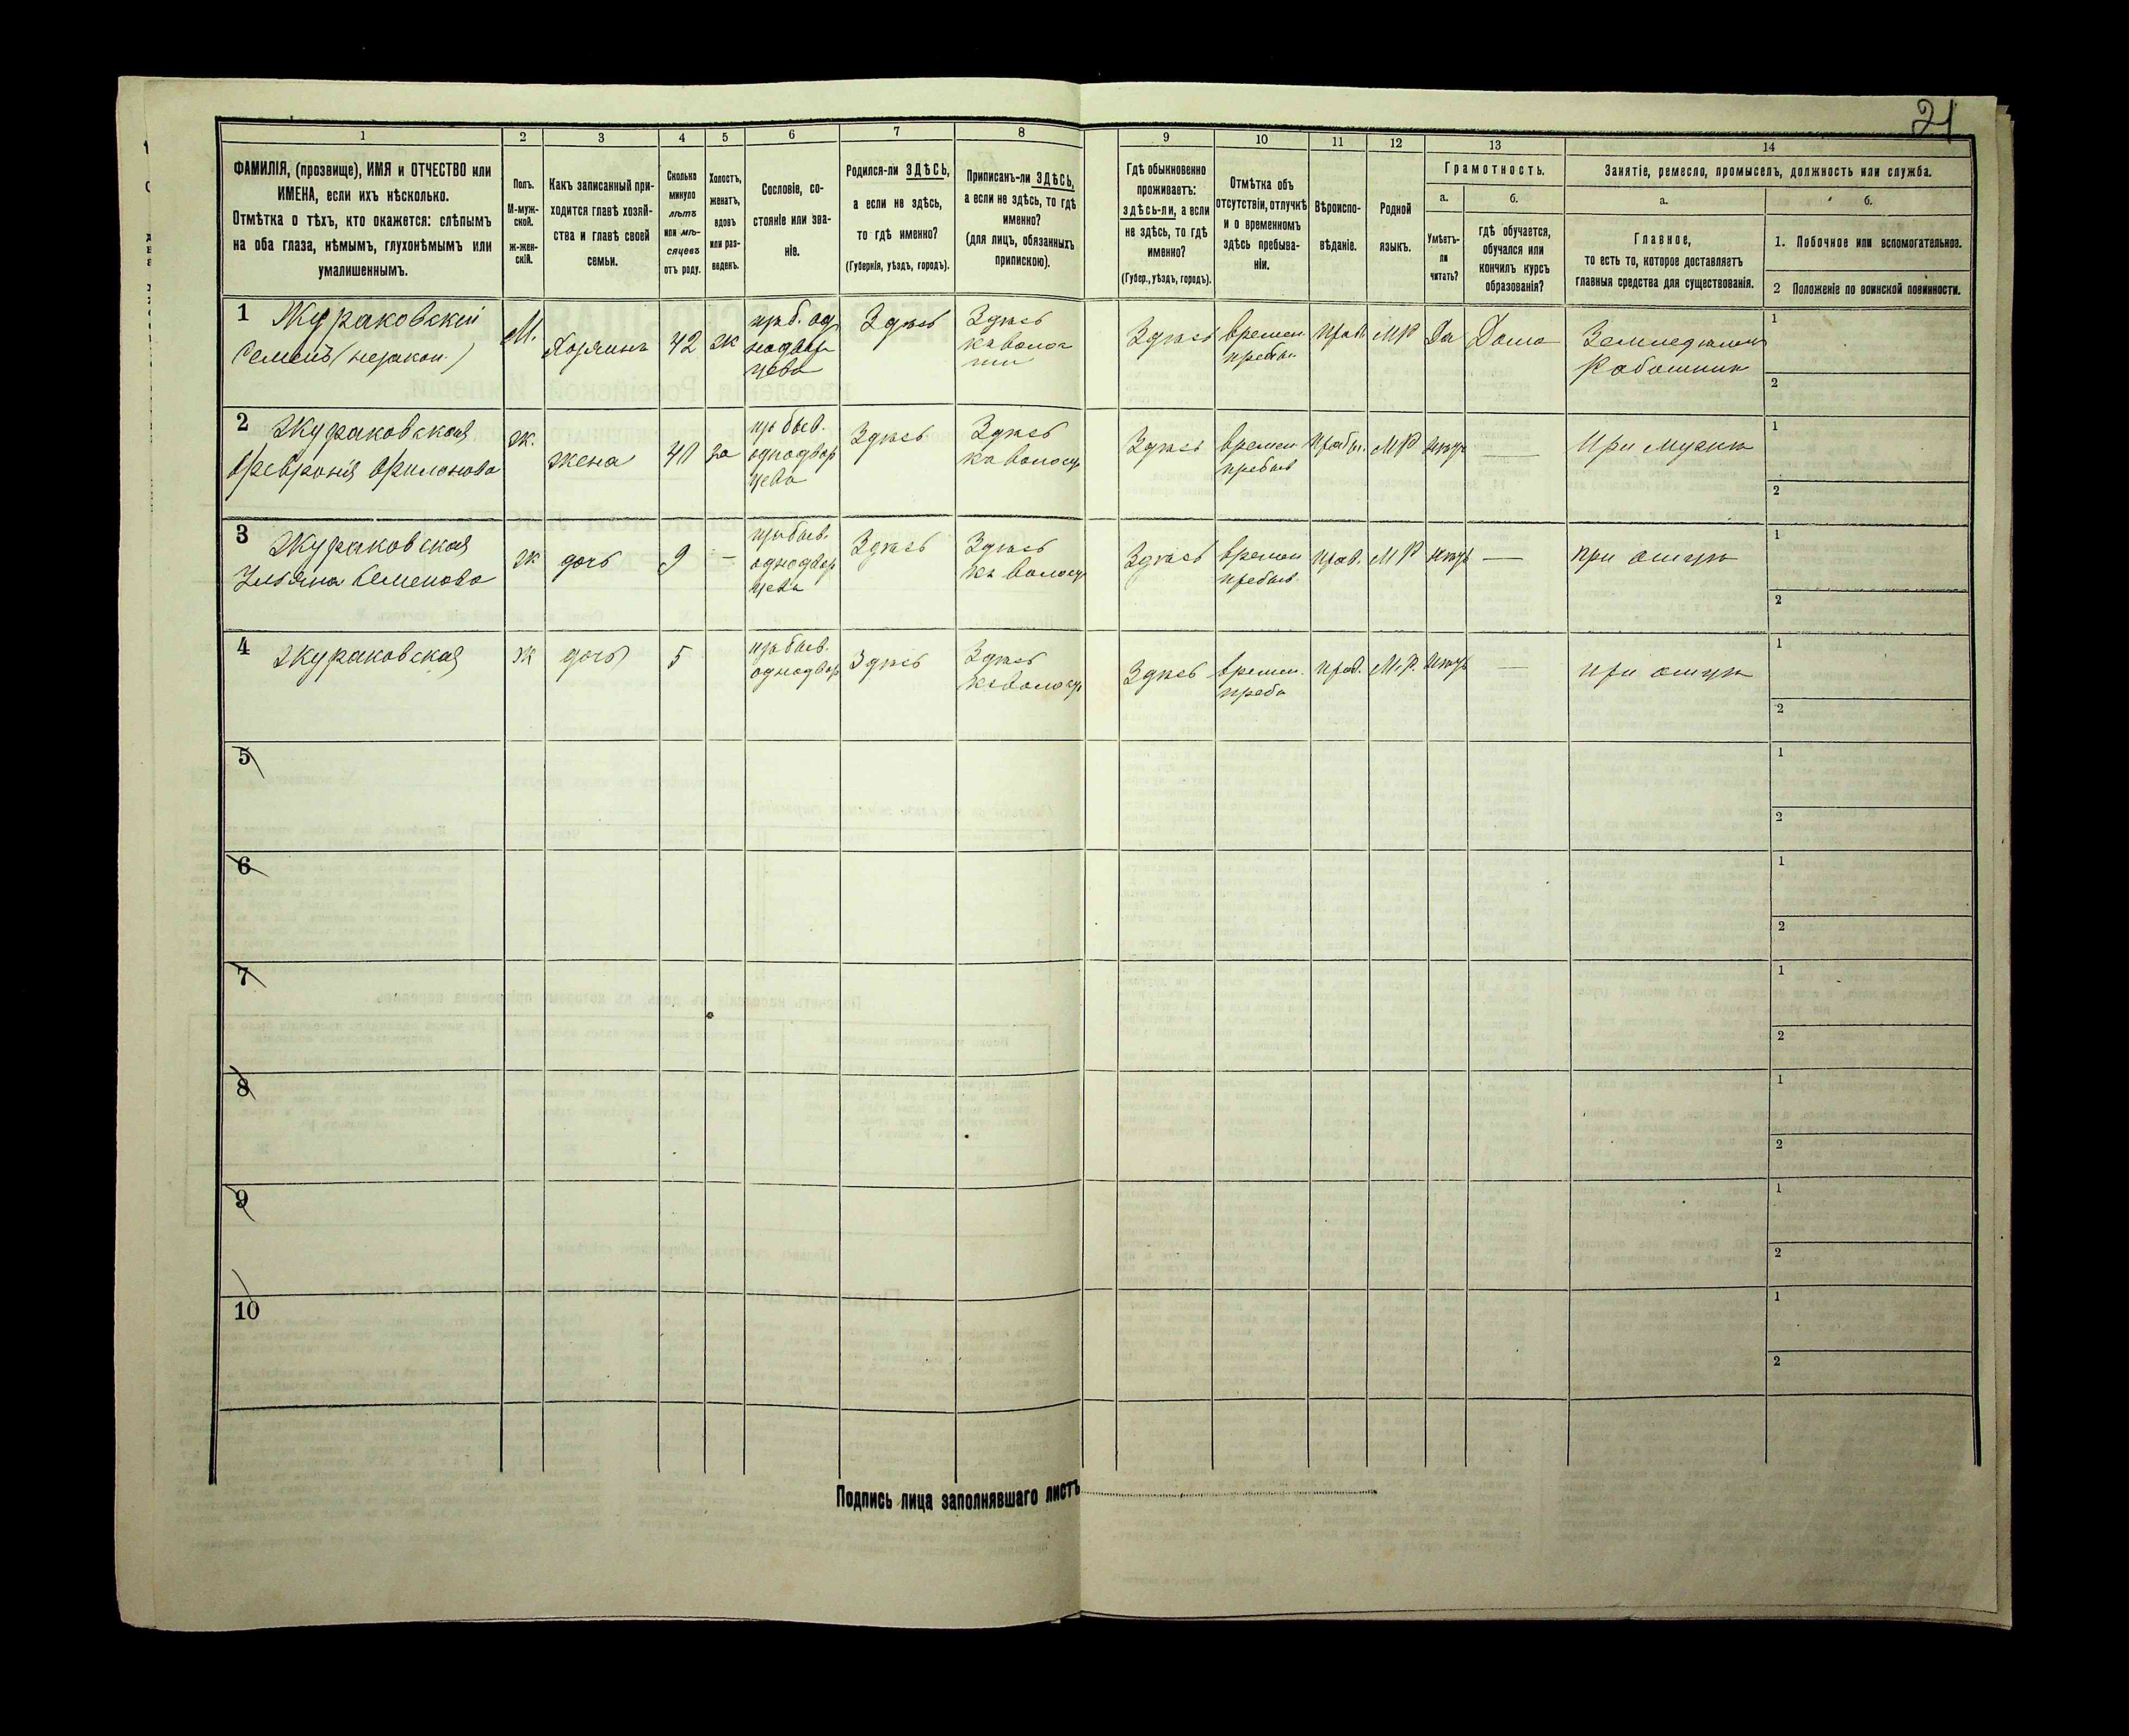 21
1 2 3 4 5 6 7 8 9 10 11 12 13 14
ФАМИЛІЯ, (прозвище), ИМЯ и ОТЧЕСТВО или
ИМЕНА, если ихъ нѣсколько.
Отмѣтка о тѣхъ, кто окажется: слѣпымъ
на оба глаза, нѣмымъ, глухонѣмымъ или
умалишеннымъ.
Полъ.
М-муж-
ской.
ж-жен-
скій.
Какъ записанный при-
ходится главѣ хозяй-
ства и главѣ своей
семьи.
Сколько
минуло
лѣтъ
или мѣ-
сяцевъ
отъ роду.
Холостъ,
женатъ,
вдовъ
или раз-
веденъ.
Сословіе, со-
стояніе или зва-
ніе.
Родился-ли ЗДѢСЬ,
а если не здѣсь,
то гдѣ именно?
(Губернія, уѣздъ, городъ).
Приписанъ-ли ЗДѢСЬ,
а если не здѣсь, то гдѣ
именно?
(для лицъ, обязанныхъ
припискою).
Гдѣ обыкновенно
проживаетъ:
здѣсь-ли, а если
не здѣсь, то гдѣ
именно?
(Губер., уѣздъ, городъ).
Отмѣтка объ
отсутствіи, отлучкѣ
и о временномъ
здѣсь пребыва-
ніи.
Вѣроиспо-
вѣданіе.
Родной
языкъ.
Грамотность.
а.
Умѣетъ-
ли
читать?
б.
гдѣ обучается,
обучался или
кончилъ курсъ
образованія?
Занятіе, ремесло, промыселъ, должность или служба.
а.
Главное,
то есть то, которое доставляетъ
главныя средства для существованія.
б.
1. Побочное или вспомогательное.
2 Положеніе по воинской повинности.
1 Жураковскій
Семенъ (незакон.)
М.
Хозяинъ
42
ж
Здѣсь
Здѣсь
Здѣсь
времен
пребыв.
Прав.
МР
Да
Дома
1
2
2 Жураковская
Февронія Филонова
ж.
жена
40
за
из быв.
однодвор
цевъ
Здѣсь
Здѣсь
Здѣсь
времен
пребыв
МР
При мужѣ
1
2
3 Жураковская
Ульяна Семенова
ж
дочь
9
—
из быв.
однодвор
цевъ
Здѣсь
Здѣсь
Здѣсь
времен
пребыв.
Прав.
МР
—
при отцѣ
1
2
4 Жураковская
ж
дочь
5
из быв.
однодвор
Здѣсь
Здѣсь
Здѣсь
времен.
Прав.
М.Р.
—
при отцѣ
1
2
5
1
2
6
1
2
7
1
2
8
1
2
9
1
2
10
1
2
Подпись лица заполнявшаго листъ